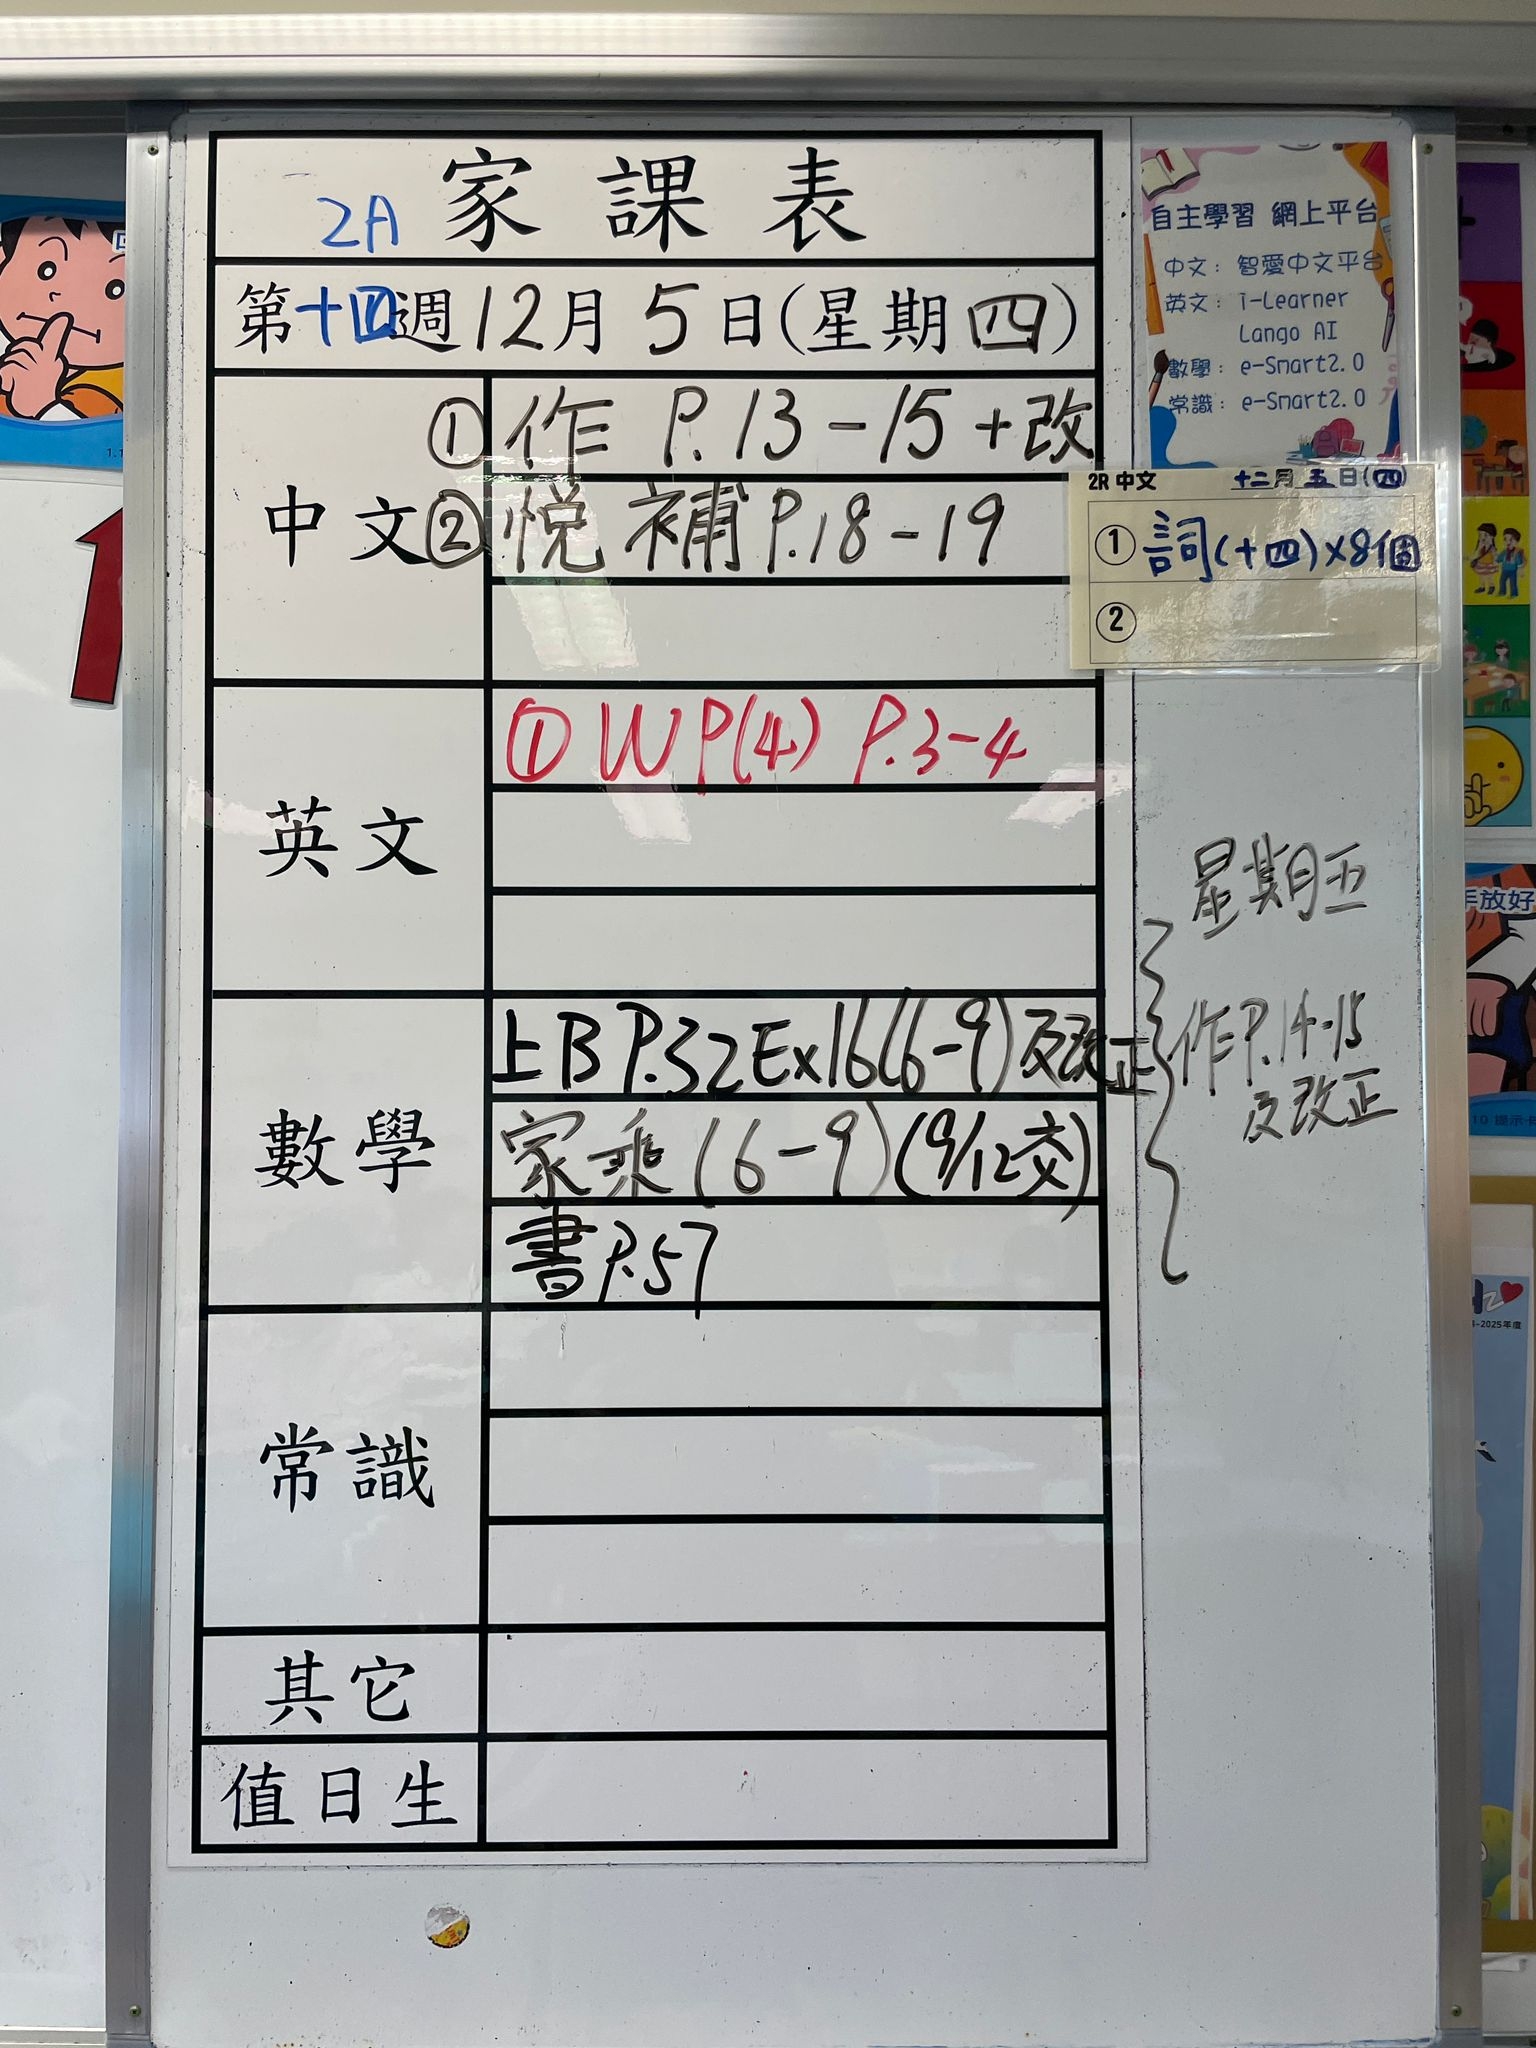 2A 家課表
第十四週12月5日(星期四)
中文
①作 P.13-15+改
②悅補P.18-19
英文
①WP(4) P.3-4
數學
上B P.32Ex16(6-9)及改正
家乘(6-9)(9/12交)
書P.57
常識
其它
值日生
自主學習 網上平台
中文：智愛中文平台
英文：i-Learner
Lango AI
數學：e-Smart2.0
常識：e-Smart2.0
2R中文 十二月五日(四)
①詞(十四)×8個
②
星期五
作P.14-15
及改正
手放好
10 提示卡
-2025年度
1.1